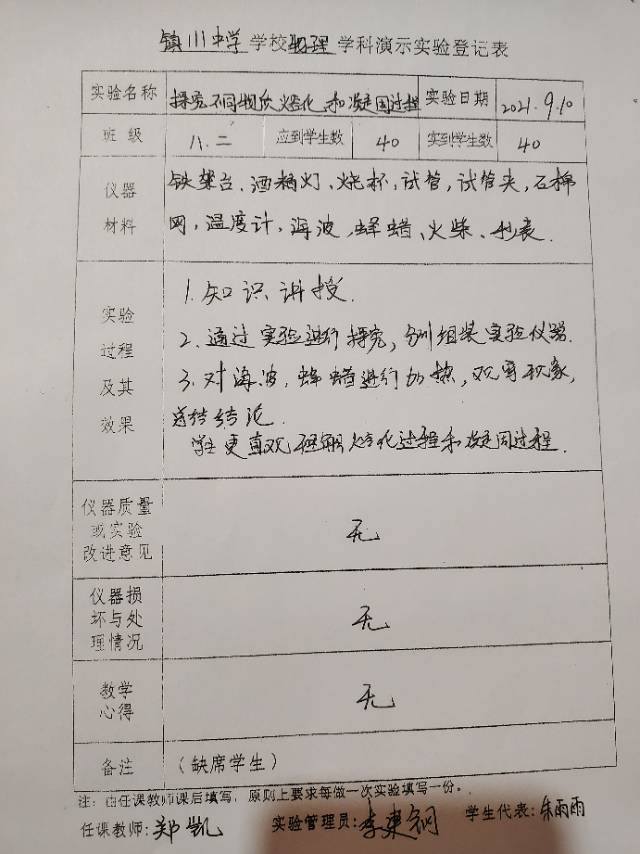 镇川中学学校物理学科演示实验登记表
实验名称 探究不同物质熔化和凝固过程 实验日期 2021.9.10
班级 八.二 应到学生数 40 实到学生数 40
仪器材料
铁架台、酒精灯、烧杯,试管,试管夹,石棉
网,温度计,海波,蜂蜡、火柴、秒表.
实验过程及其效果
1.知识讲授.
2.通过实验进行探究,分组组装实验仪器.
3.对海波,蜂蜡进行加热,观察现象,
总结结论.
学生更直观理解熔化过程和凝固过程.
仪器质量或实验改进意见 无
仪器损坏与处理情况 无
教学心得 无
备注 (缺席学生)
注:由任课教师课后填写,原则上要求每做一次实验填写一份。
任课教师:郑凯 实验管理员:李建钢 学生代表:朱雨雨